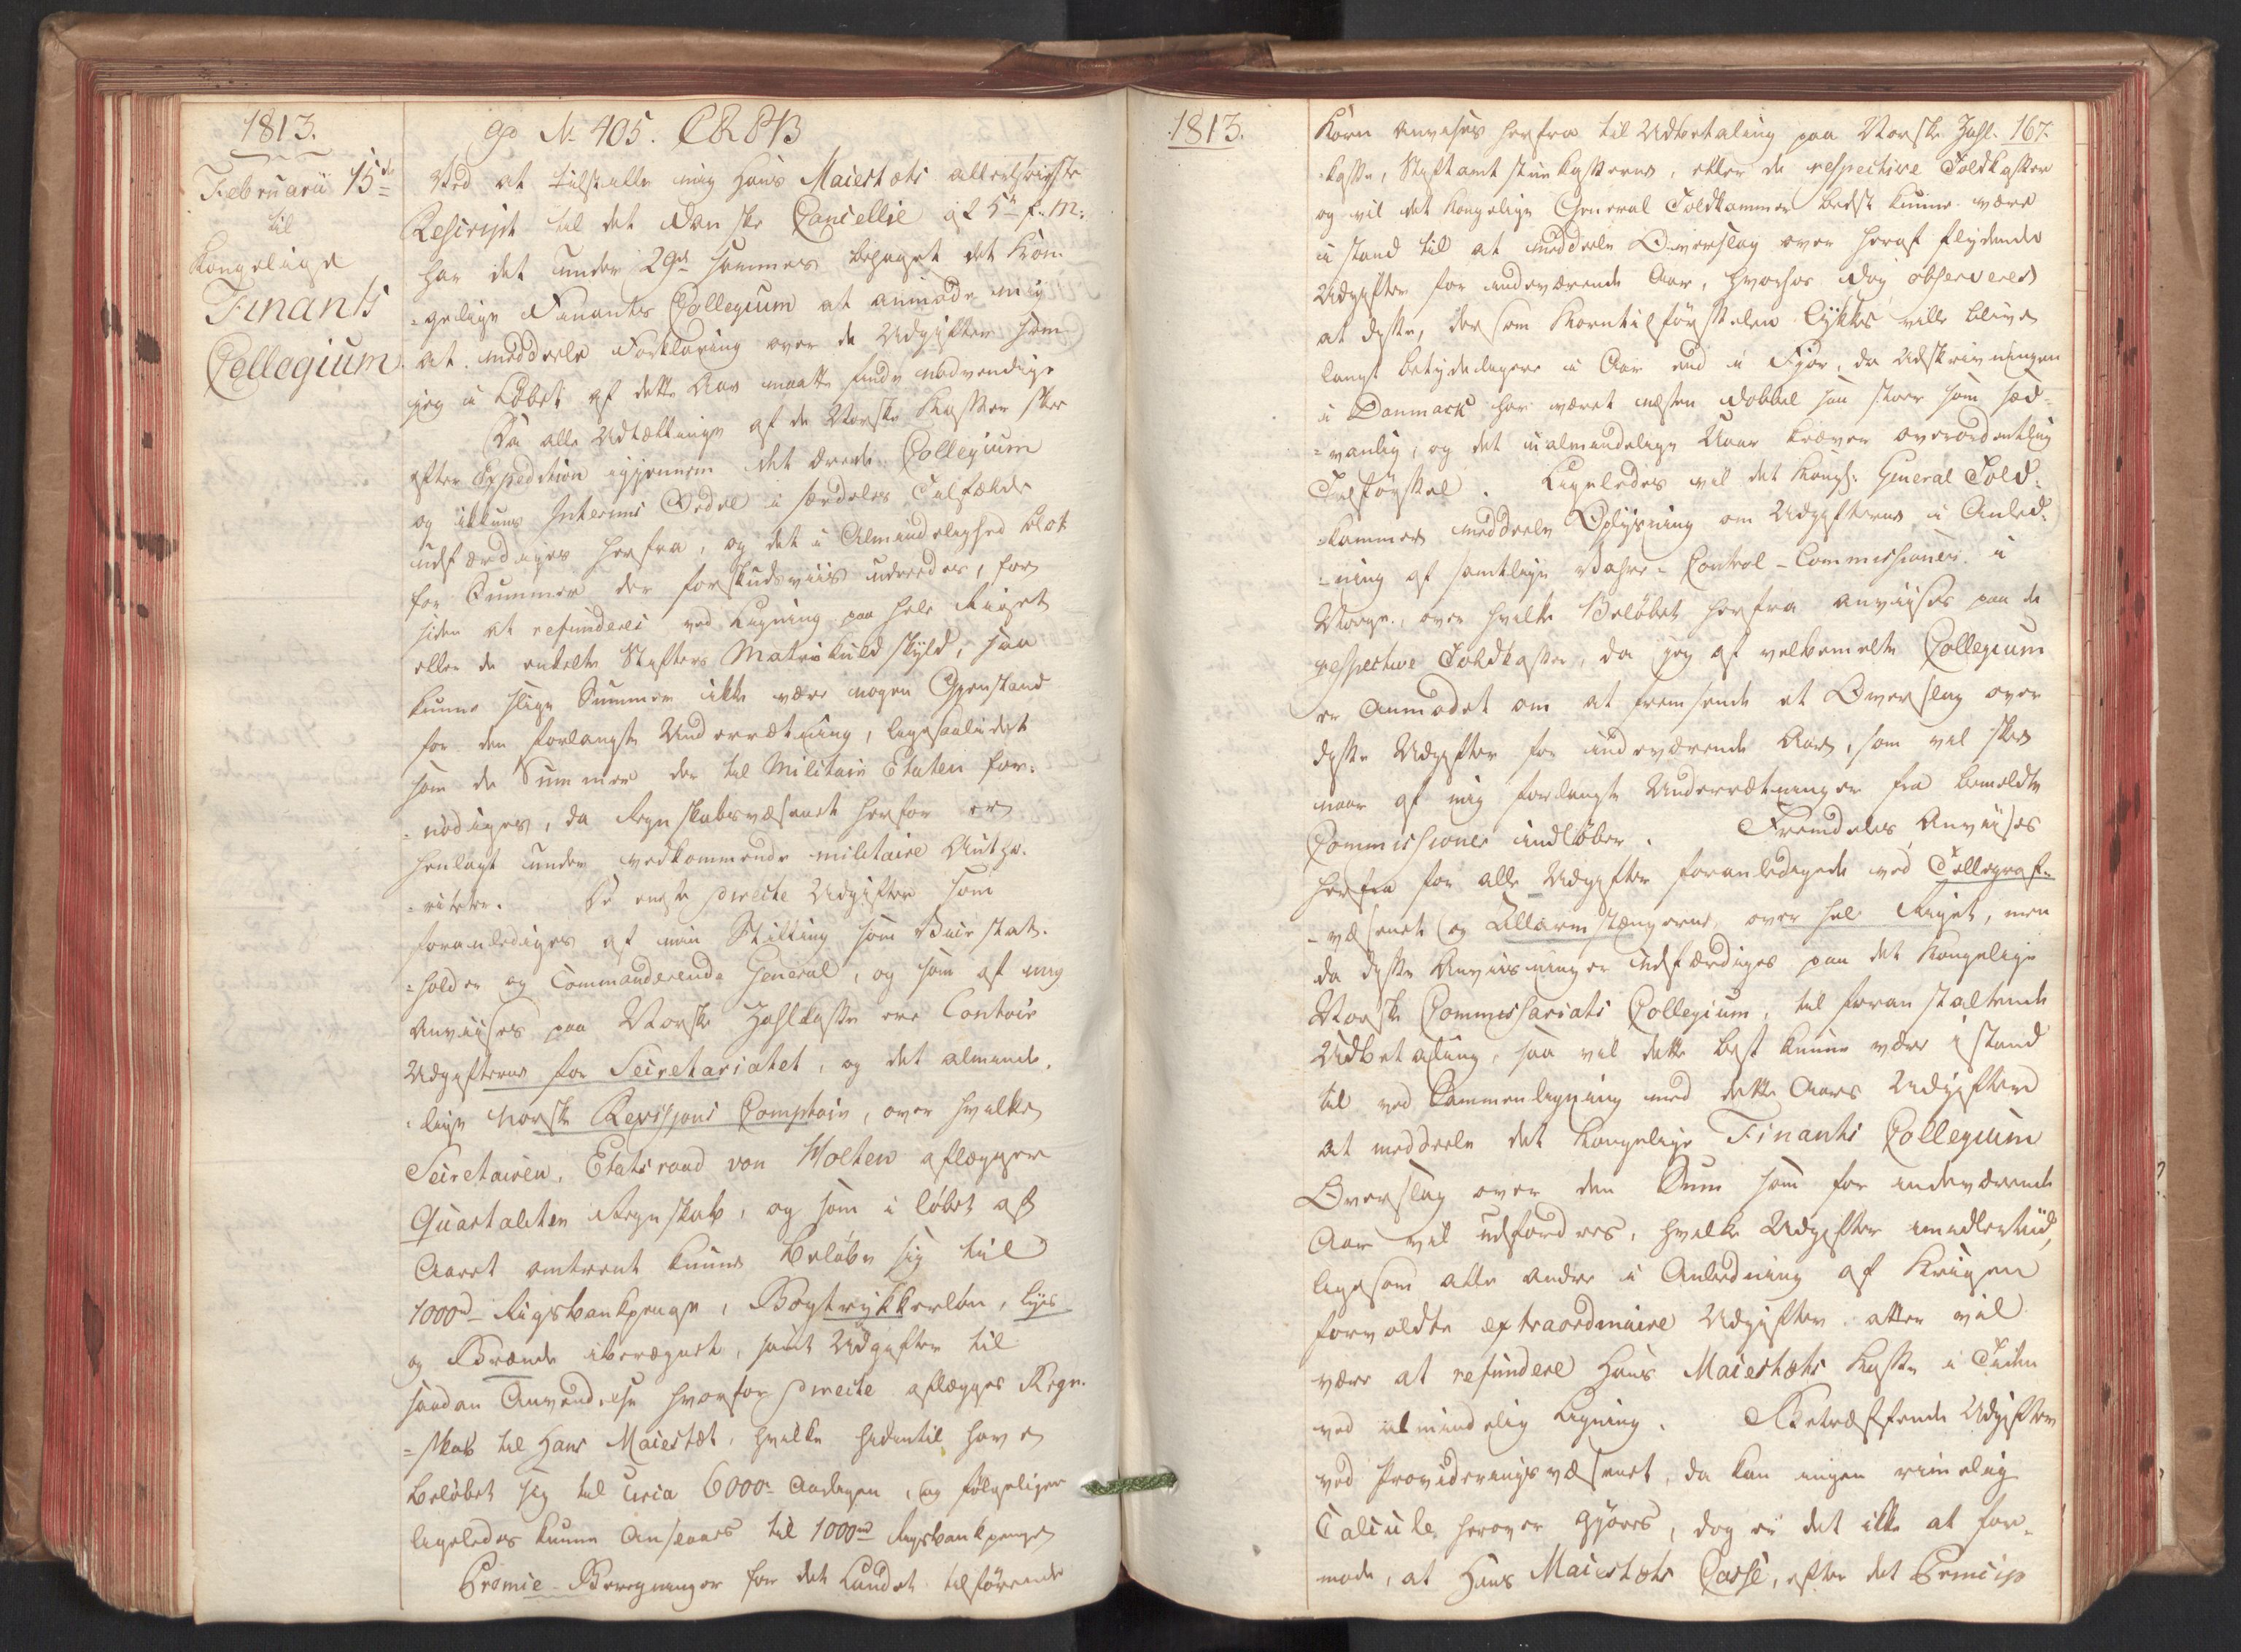 1813.
Februarii 15de
til
Kongelige
Finants
Collegium.
gp No 405. C&PB
Ved at tilstille mig Hans Maiestæts allerhøieste
Rescript til det Danske Cancellie af 25de f. M:
har det under 29de sammes behaget det Kon-
=gelige Finants Collegium at anmode mig
at meddeele Forklaring over de Udgifter som
jeg i Løbet af dette Aar maatte finde nødvendige
Da alle Udtællinger af de Norske Kasser skee
efter Expedition igjennem det ærede Collegium
og ikkuns Interims Ordre i særdeles Tilfælde
udfærdiges herfra, og det i Almindelighed blot
for Summer der forskudsviis udredes, for
siden at refunderes ved Ligning paa hele Riget
eller de enkelte Stifters Matrikulskyld, saa
kunne slige Summer ikke være nogen Gjenstand
for den forlangte Underretning, ligesaalidet
som de Summer der til Militair Etaten for-
=nødiges, da Regnskabsvæsenet herfor er
henlagt under vedkommende militaire Autho-
=riteter. De eneste directe Udgifter som
foranlediges af min Stilling som Vice Stat-
=holder og Commanderende General, og som af mig
anviises paa Norske Zahlkasse ere Contoir
Udgifterne for Secretariatet, og det alminde-
=lige norske Revisions Comptoir, over hvilke
Secretairen, Etatsraad von Holten aflægger
Quartaliter Regnskab, og som i løbet af
Aaret omtrent kunne beløbe sig til
1000rd Rigsbankpenge, Bogtrykkerløn, Lys
og Brænde iberegnet, samt Udgifter til
saadan Anvendelse hvorfor directe aflægges Regn-
=skab til Hans Maiestæt, hvilke hidentil have
beløbet sig til circa 6000rd aarligen, og følgeligen
ligeledes kunne ansees til 1000rd Rigsbankpenge
Premie-Beregninger for det Landet tilførende
1813.
Korn anvises herfra til Udbetaling paa Norske Zahl- 167.
=kasse, Stiftamtstuekasserne, eller de respective Toldkasser
og vil det Kongelige General Toldkammer bedst kunne være
i stand til at meddeele Overslag over heraf flydende
Udgifter for indeværende Aar, hvorhos dog observeres
at disse, dersom Korntilførselen lykkes ville blive
langt betydeligere i Aar end i Fjor, da Udskrivningen
i Danmark har været næsten dobbel saa stoer som sæd-
=vanlig, og det ualmindelige Uaar kræver overordentlig
Tilførsel. Ligeledes vil det Kongl: General Told-
=kammer meddeele Oplysning om Udgifterne i Anled-
=ning af samtlige Vahre-Control-Commissioner i
Norge, over hvilke Beløbet herfra anviises paa de
respective Toldkasser, da jeg af velbemelte Collegium
er anmodet om at fremsende et Overslag over
disse Udgifter for indeværende Aar, som vil skee
naar af mig forlangte Underretninger fra bemeldte
Commissioner indløber. Fremdeles Anviises
herfra for alle Udgifter foranledigede ved Tellegraf-
-væsenet og Allarmstængerne over hel Riget, men
da disse Anviisninger udfærdiges paa det Kongelige
Norske Commissariats Collegium, til foranstaltende
Udbetaling, saa vil dette best kunne være i stand
til ved Sammenligning med dette Aars Udgifter
at meddeele det Kongelige Finants Collegium
Overslag over den Sum som for indeværende
Aar vil udfordres, hvilke Udgifter imidlertiid,
ligesom alle andre i Anledning af Krigen
forvoldte extraordinaire Udgifter atter vil
være at refundere Hans Maiestæts Kasse i Tiden
ved almindelig Ligning. Betræffende Udgifter
ved Provideringsvæsenet, da kan ingen rimelig
Calcule herover gjøres, dog er det ikke at for-
mode, at Hans Maiestæts Casse, efter det Princip